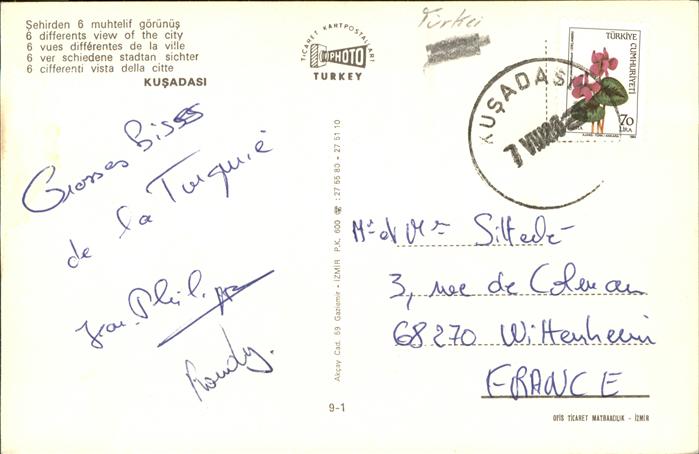 Şehirden 6 muhtelif görünüş
6 differents view of the city
6 vues différentes de la ville
6 ver schiedene stadtan sichter
6 cifferenti vista della citte
KUŞADASI
TİCARET KARTPOSTALLARI
PHOTO
TURKEY
Türkei
TÜRKİYE
CUMHURİYETİ
70
LİRA
KUŞADASI
7
Grosses Bisss
de la Turquie
Jean-Philippe
Roudy.
Akçay Cad. 59 Gaziemir - İZMİR P.K. 600 ☎ : 27 55 80 - 27 51 10
9-1
Mr et Mme
3, rue de Colmar
68270 Wittenheim
FRANCE
OFİS TİCARET MATBAACILIK - İZMİR